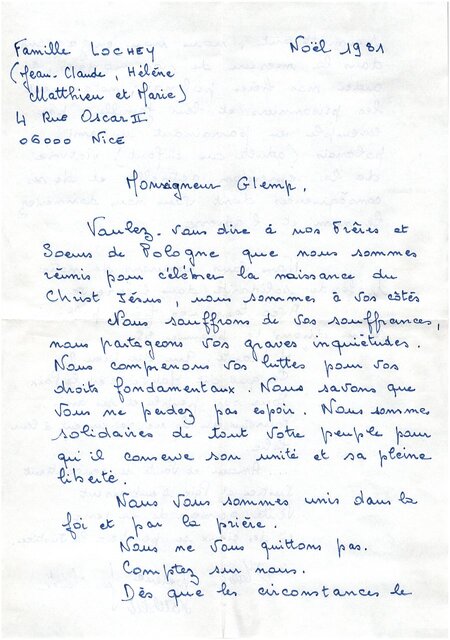 Famille LOCHEY
Noël 1981
(Jean-Claude, Hélène
Matthieu et Marie)
4 Rue Oscar II
06000 Nice
Monseigneur Glemp,
Voulez-vous dire à nos Frères et
Soeurs de Pologne que nous sommes
réunis pour célébrer la naissance du
Christ Jésus, nous sommes à vos côtés
Nous souffrons de vos souffrances,
nous partageons vos graves inquiétudes.
Nous comprenons vos luttes pour vos
droits fondamentaux. Nous savons que
vous ne perdez pas espoir. Nous sommes
solidaires de tout votre peuple pour
qu'il conserve son unité et sa pleine
liberté.
Nous vous sommes unis dans la
foi et par la prière.
Nous ne vous quittons pas.
Comptez sur nous.
Dès que les circonstances le